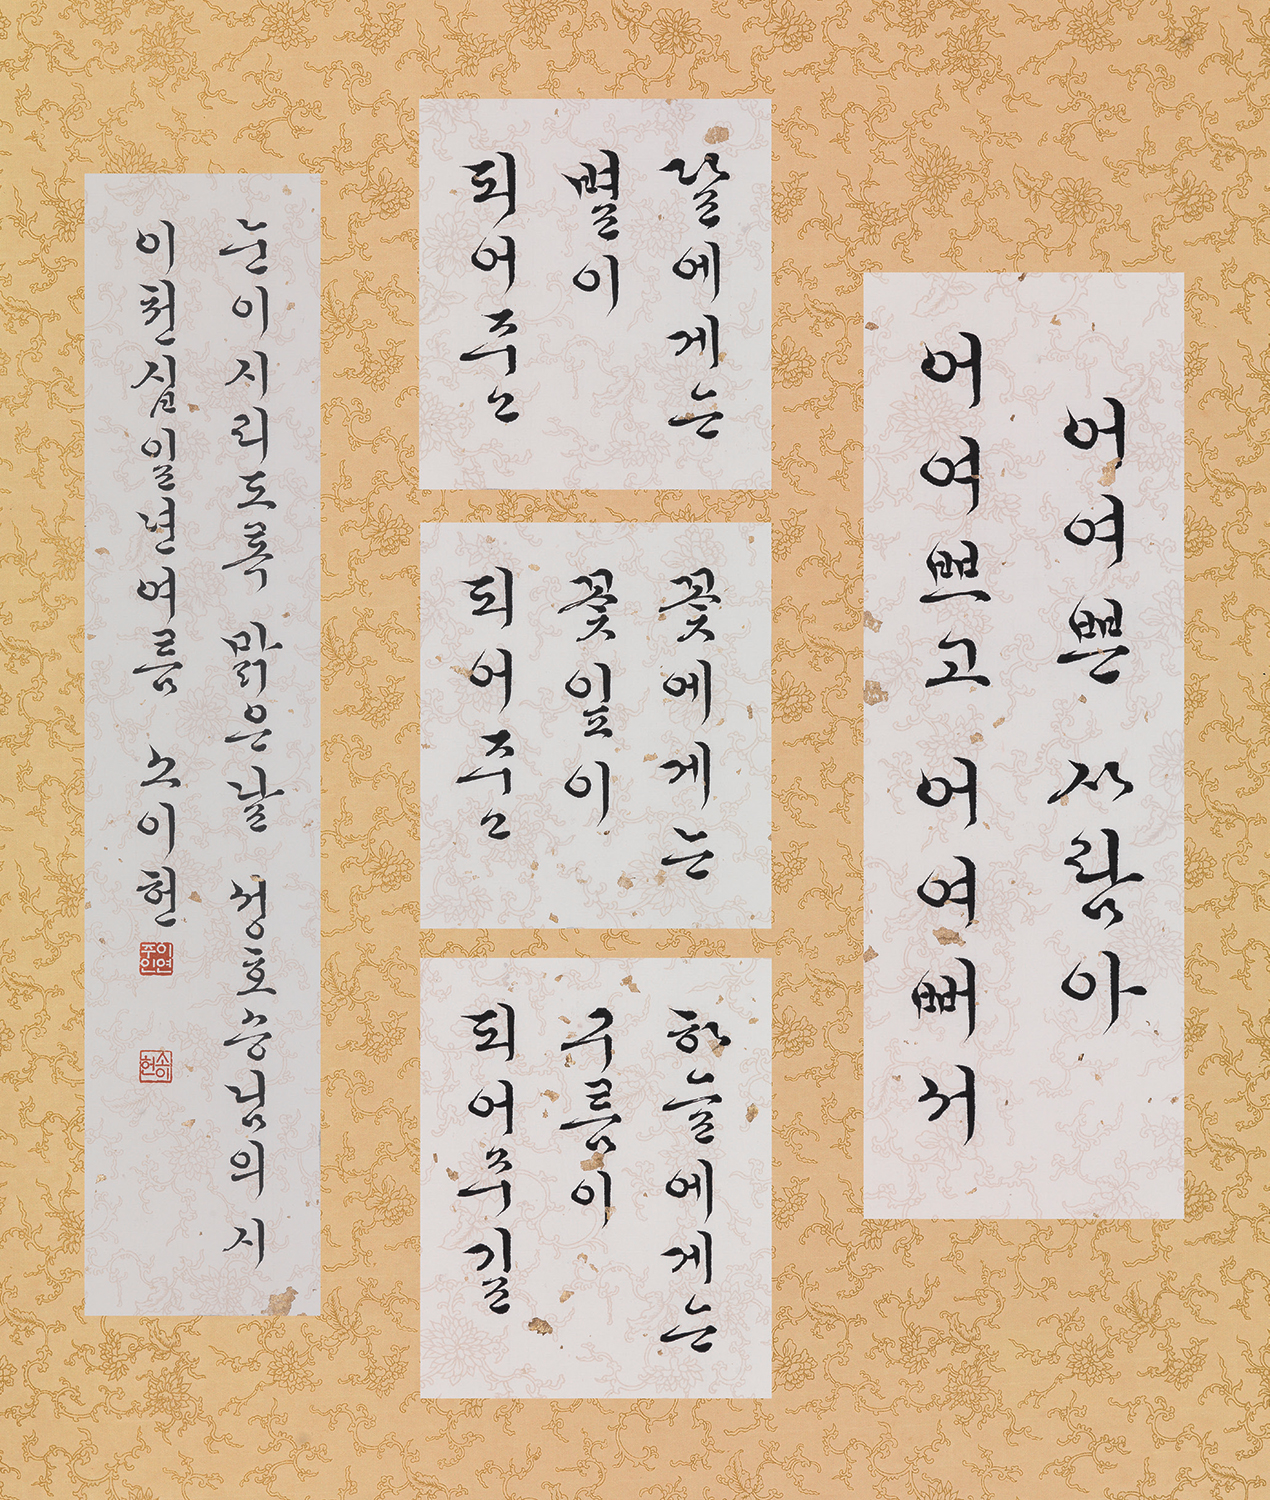 어여쁜 사람아
어여쁘고 어여뻐서
달에게는
별이
되어주고
꽃에게는
꽃잎이
되어주고
하늘에게는
구름이
되어주길
눈이시리도록 맑은날 정호승님의 시
이천십일년여름 소이헌
이연주인
소이헌